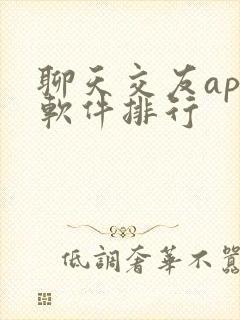 聊天交友ap
軟件排行
低調奢華不囂